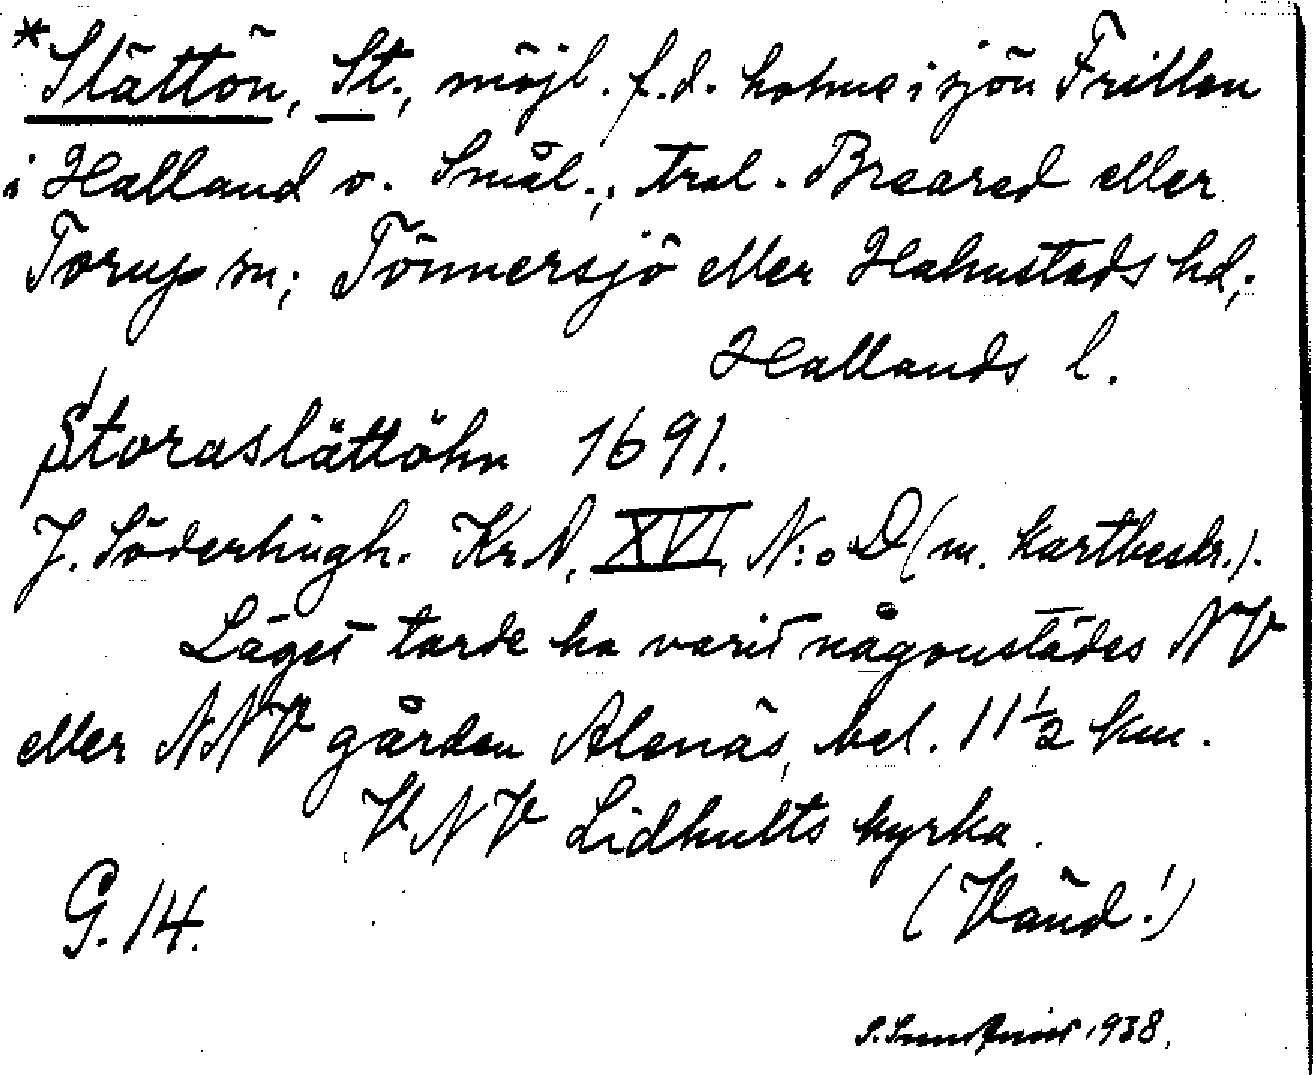 *Slättön, St., möjl. f.d. holme i sjön Frillen
i Halland o. Smål., trol. Breared eller
Torup sn; Tönnersjö eller Halmstads hd;
Hallands l.
Storaslättöhn 1691.
J. Söderhiugh. Kr.A. XVI, N:o D (m. kartbeskr.).
Läget torde ha varit någonstädes NV
eller NNV gården Alenäs, bel. 11 1/2 km.
VNV Lidhults kyrka.
G. 14. (Vänd!)
1938.